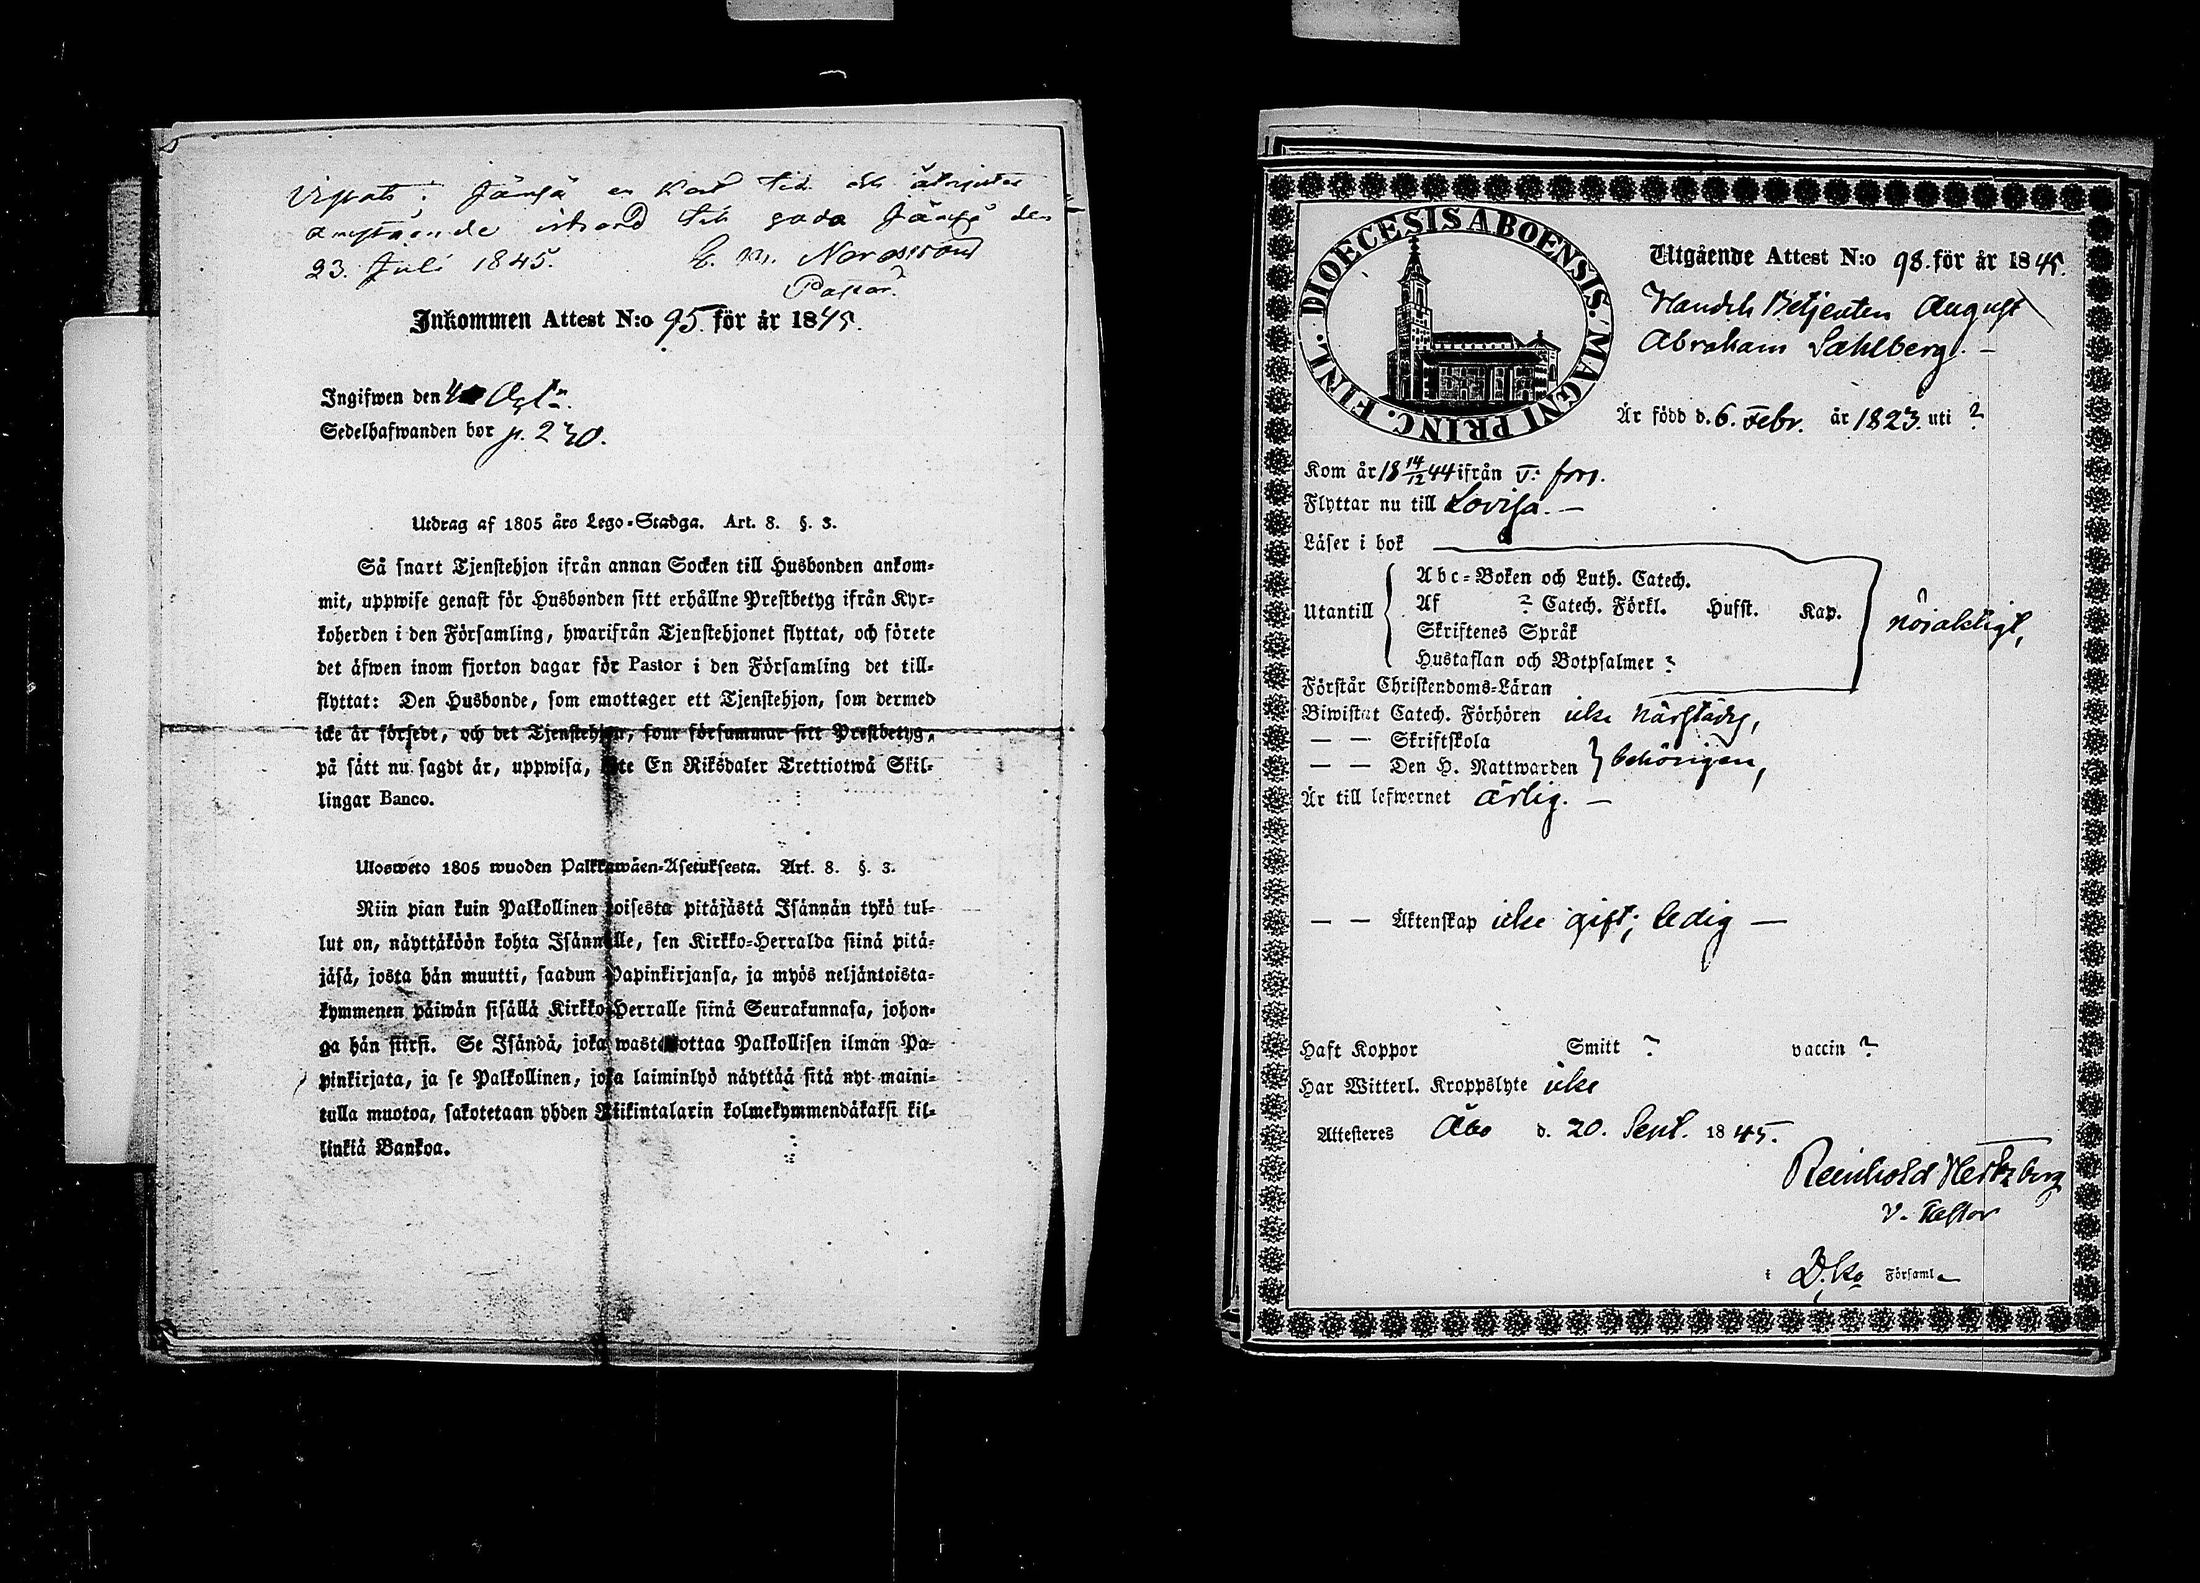 Vistats i Jämsä en kort tid och återgifter
anstående istånd till goda Jämsä den
23. Juli 1845. Nordstrand
Pastor.
Inkommen Attest N:o 95. för år 1845.
Ingifwen den
Sedelhafwanden bor p. 230.
Utdrag af 1805 års Lego-Stadga. Art. 8. §. 3.
Så snart Tjenstehjon ifrån annan Socken till Husbonden ankom-
mit, uppwise genast för Husbonden sitt erhållne Prestbetyg ifrån Kyr-
koherden i den Församling, hwarifrån Tjenstehjonet flyttat, och förete
det äfwen inom fjorton dagar för Pastor i den Församling det till-
flyttat: Den Husbonde, som emottager ett Tjenstehjon, som dermed
icke är försedt, och det Tjenstehjon, som försummar sitt Prestbetyg,
på sätt nu sagdt är, uppwisa, böte En Riksdaler Trettiotwå Skil-
lingar Banco.
Ulosweto 1805 wuoden Palkkawäen-Asetuksesta. Art. 8. §. 3.
Niin pian kuin Palkollinen toisesta pitäjästä Isännän tykö tul-
lut on, näyttäköön kohta Isännälle, sen Kirkko-Herralda siinä pitä-
jäsä, josta hän muutti, saadun Papinkirjansa, ja myös neljäntoista-
kymmenen päiwän sisällä Kirkko-Herralle siinä Seurakunnasa, johon-
ga hän siirsi. Se Isändä, joka wastaanottaa Palkollisen ilman Pa-
pinkirjata, ja se Palkollinen, joka laiminlyö näyttää sitä nyt maini-
tulla muotoa, sakotetaan yhden Riikintalarin kolmekymmendäkaksi kil-
linkiä Bankoa.
DIOECESIS ABOENSIS. MAGNI PRINC. FINL.
Utgående Attest N:o 98. för år 1845.
Handels Betjenten August
Abraham Sahlberg. —
Är född d. 6. Febr. år 1823. uti ?
Kom år 18 14/12 44 ifrån v. förs.
Flyttar nu till Lovisa. —
Läser i bok
Utantill
Abc-Boken och Luth. Catech.
Af ? Catech. Förkl. Husst. Kap.
Skriftenes Språk
Hustaflan och Botpsalmer ?
nöjaktigt,
Förstår Christendoms-Läran
Biwistat Catech. Förhören icke härstädes,
— — Skriftskola
— — Den H. Nattwarden behörigen,
Är till lefwernet ärlig. —
— — Äktenskap icke gift; ledig —
Haft Koppor Smitt ? vaccin ?
Har Witterl. Kroppslyte icke
Attesteres Åbo d. 20. Sept. 1845.
Reinhold Hertzberg
v. Pastor
i D:ko Församl